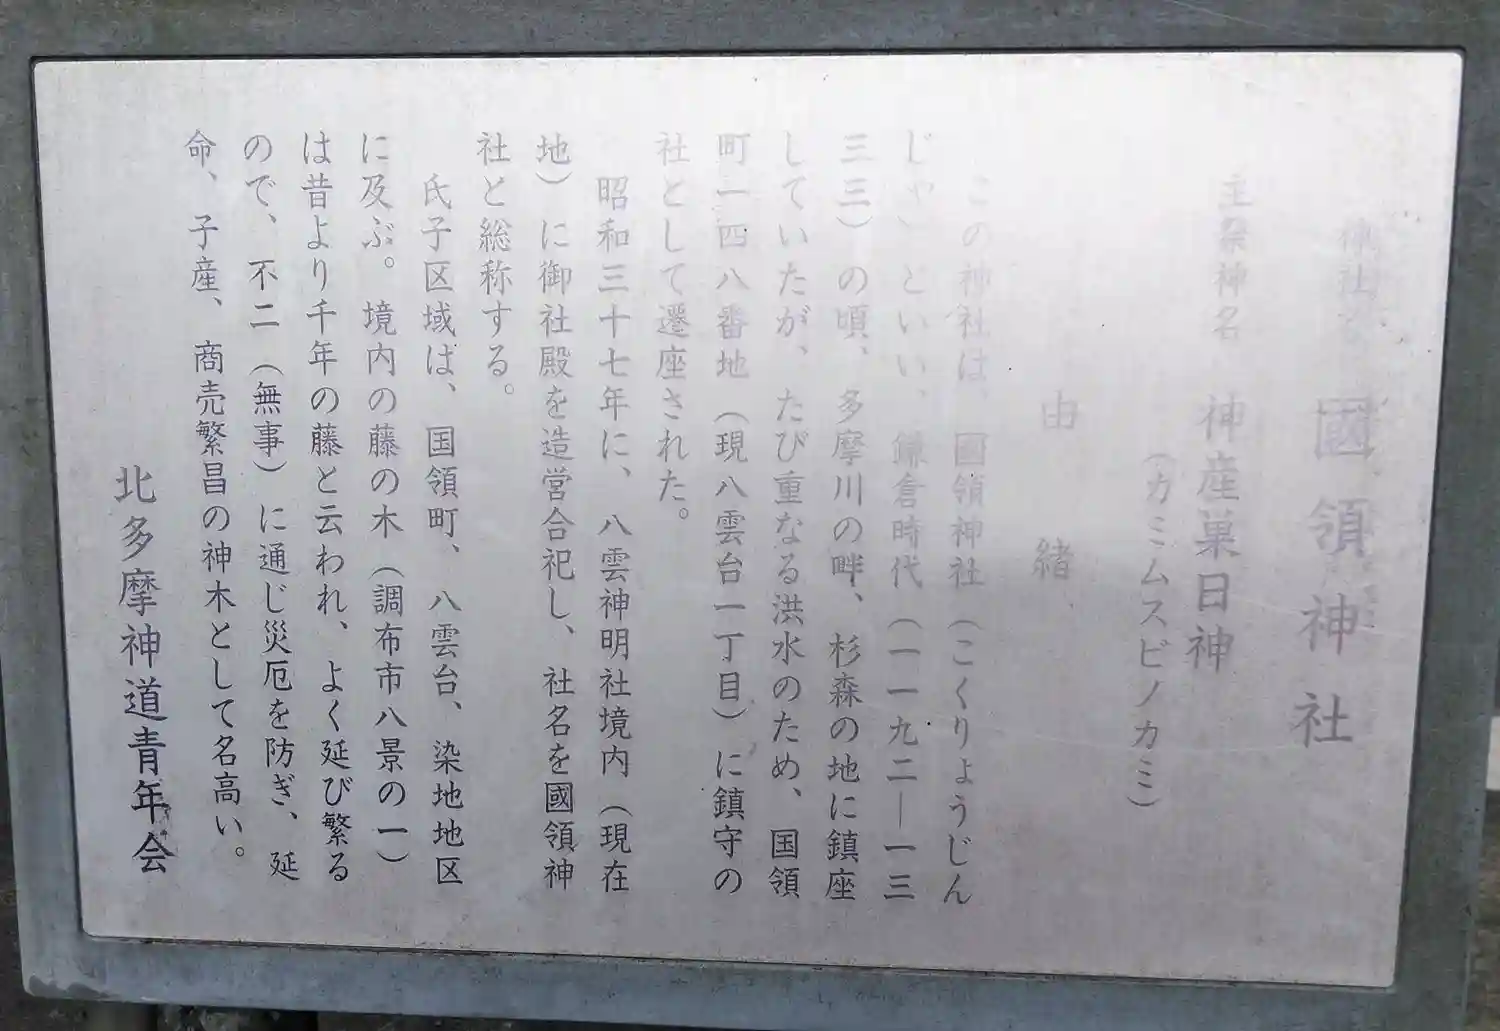 神社名 國領神社
主祭神名 神産巣日神
（カミムスビノカミ）
由緒
この神社は、國領神社（こくりょうじん
じゃ）といい、鎌倉時代（一一九二―一三
三三）の頃、多摩川の畔、杉森の地に鎮座
していたが、たび重なる洪水のため、国領
町一四八番地（現八雲台一丁目）に鎮守の
社として遷座された。
昭和三十七年に、八雲神明社境内（現在
地）に御社殿を造営合祀し、社名を國領神
社と総称する。
氏子区域は、国領町、八雲台、染地地区
に及ぶ。境内の藤の木（調布市八景の一）
は昔より千年の藤と云われ、よく延び繁る
ので、不二（無事）に通じ災厄を防ぎ、延
命、子産、商売繁昌の神木として名高い。
北多摩神道青年会